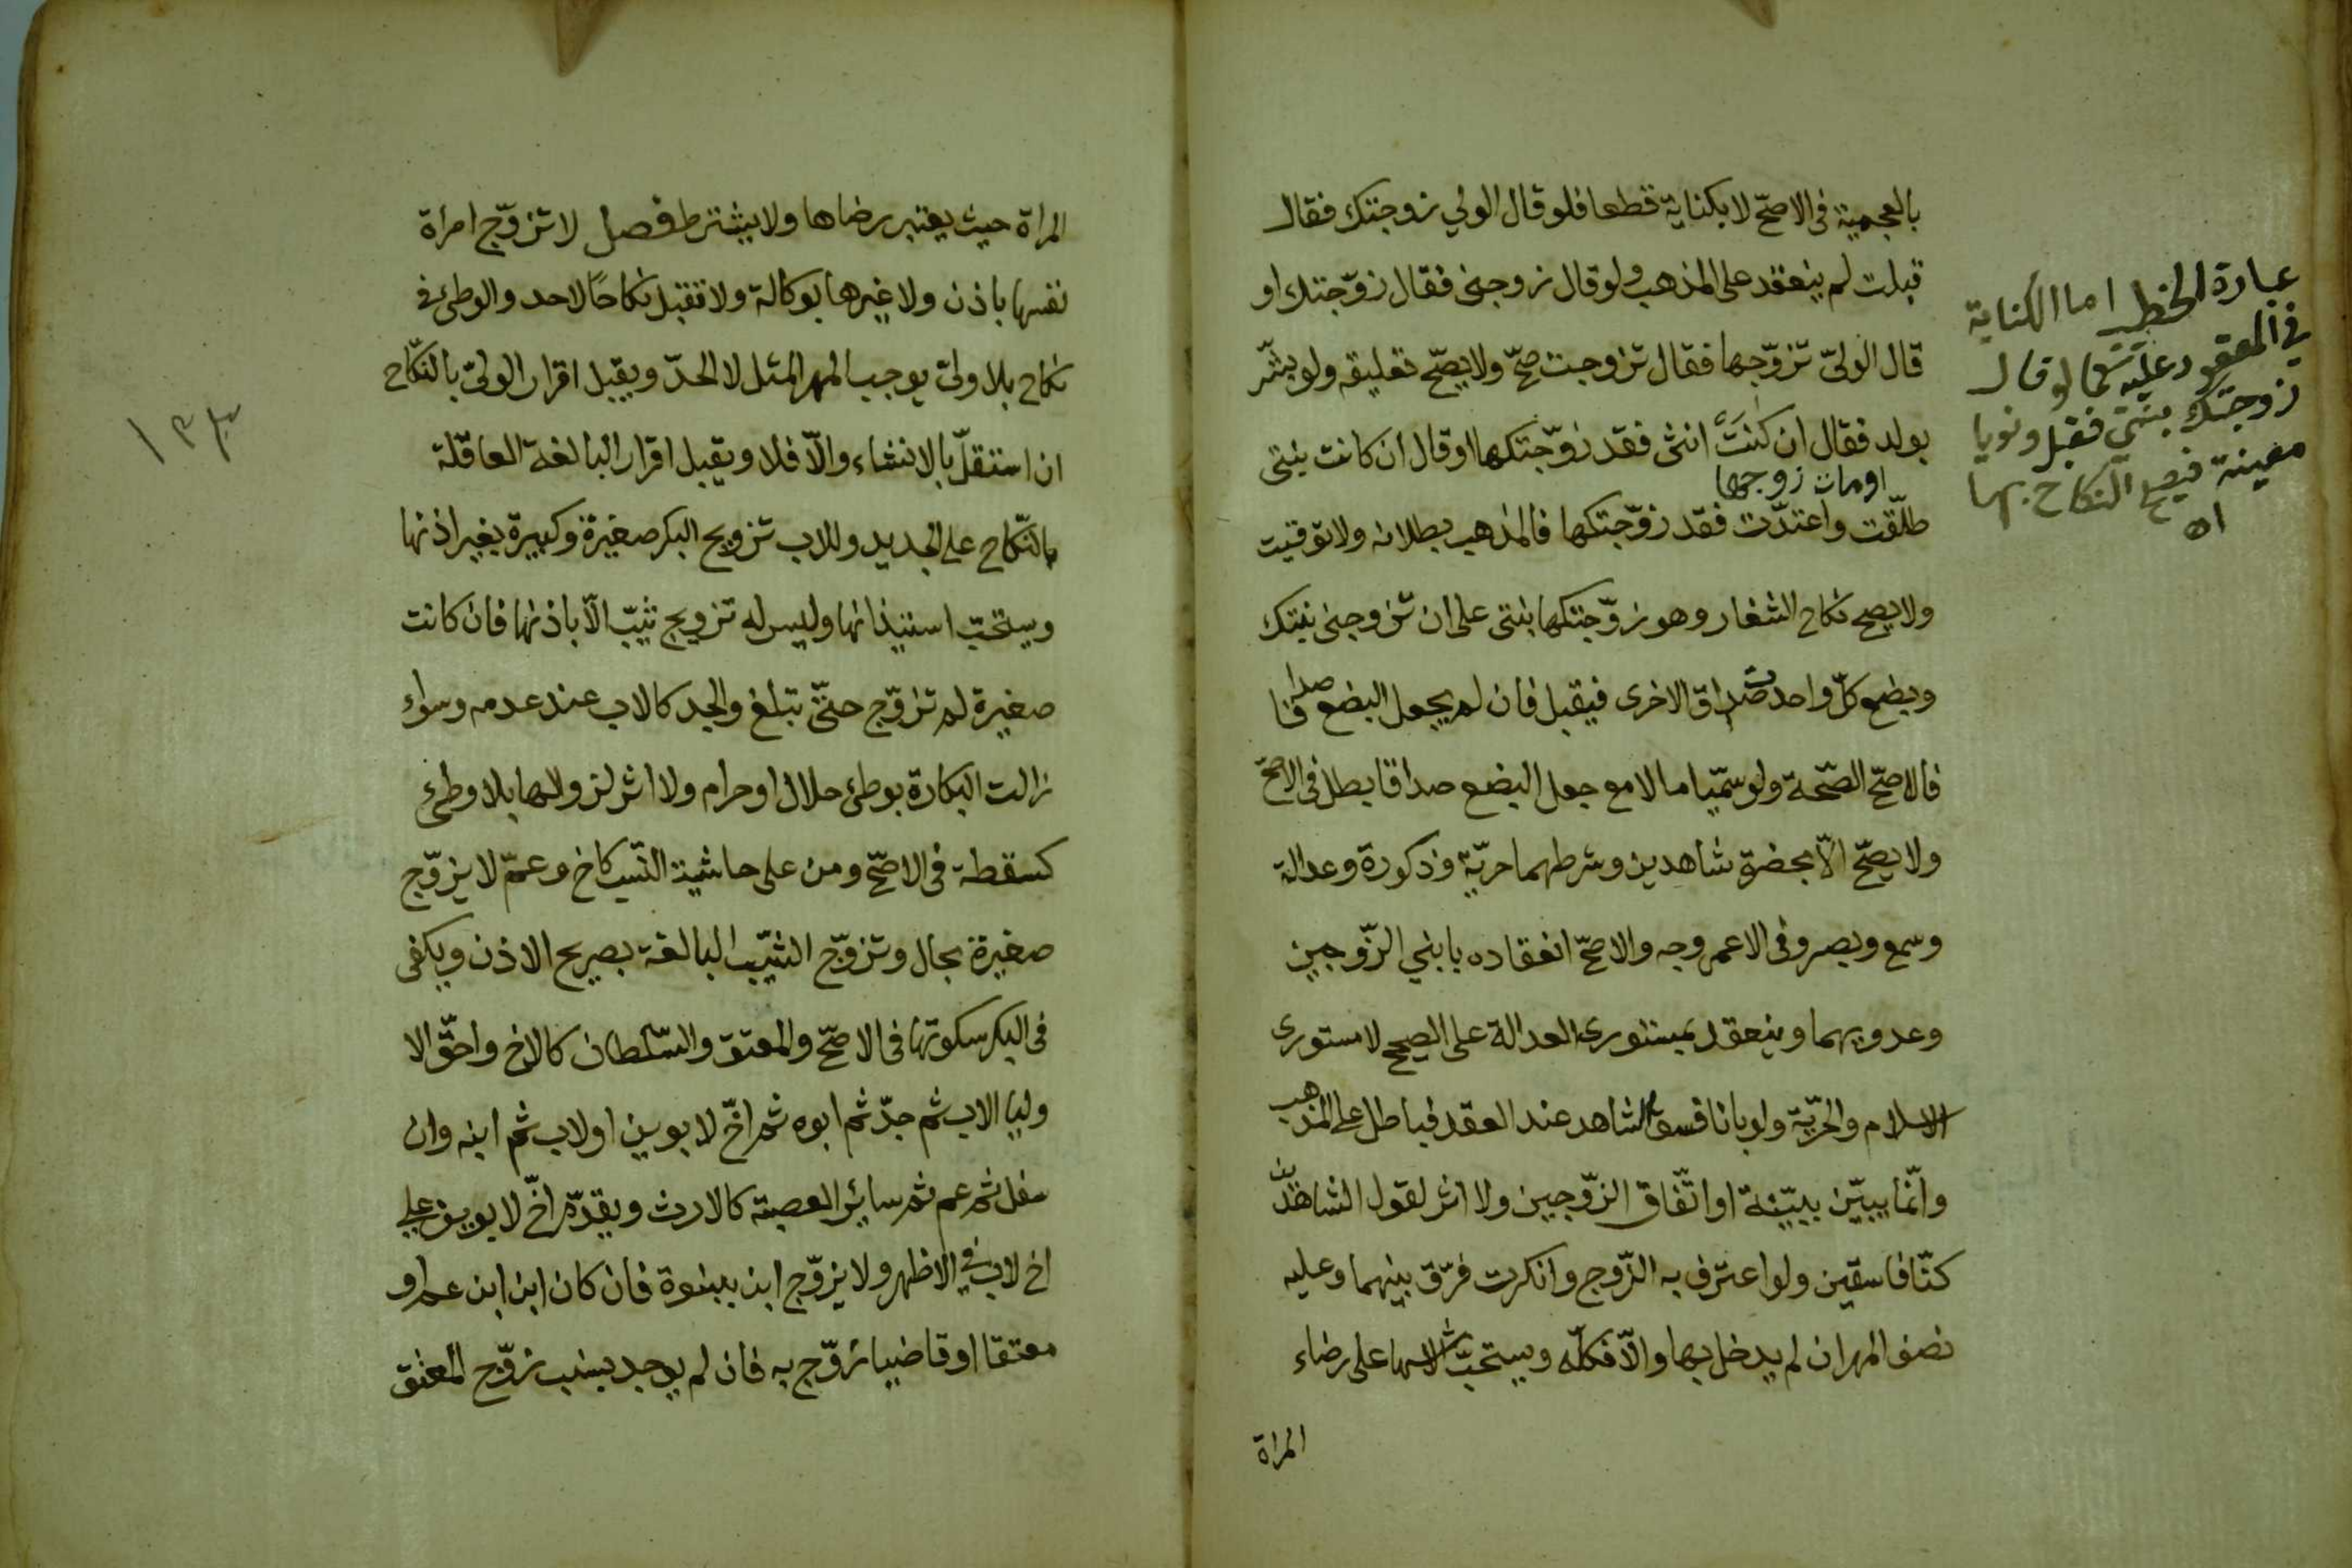 بالعجمية فى الاصحّ لا بكناية قطعا فلو قال الولي زوجتك فقال
قبلت لم ينعقد على المذهب ولو قال زوجنى فقال زوّجتك او
قال الولىّ تزوّجها فقال تزوجت صحّ ولا يصحّ تعليقه ولو بشّر
بولد فقال ان كنتَ انثى فقد زوّجتكها او قال ان كانت بنتى
او مات زوجها
طلّقت واعتدّت فقد زوّجتكها فالمذهب بطلانه ولا توقيت
ولا يصح نكاح الشغار وهو زوّجتكها بنتى على ان تزوجنى بنتك
وبضع كلّ واحدة صداق الاخرى فيقبل فان لم يجعل البضع صداقا
فالاصحّ الصّحة ولو سمّيا مالا مع جعل البضع صداقا بطل فى الاصحّ
ولا يصحّ الاّ بحضرة شاهدين وشرطهما حريّة وذكورة وعدالة
وسمع وبصر وفى الاعمى وجه والاصحّ انعقاده بابني الزّوجين
وعدويهما وينعقد بمستورى العدالة على الصحيح لا مستورى
الاسلام والحرّية ولو بانا فسق الشاهد عند العقد فباطل على المذهب
وانّما يبيّن ببيّنة او اتّفاق الزّوجين ولا اثر لقول الشاهدين
كنّا فاسقين ولو اعترف به الزّوج وانكرت فرّق بينهما وعليه
نصف المهر ان لم يدخل بها والاّ فكلّه ويستحبّ الاشهاد على رضاء
المراة
عبارة الخطيب اما الكناية
في المعقود عليه كما لو قال
زوجتك بنتي فقبل ونويا
معينة فيصح النكاح بها
اه
المراة حيث يعتبر رضاها ولا يشترط فصل لا تزوّج امراة
نفسها باذن ولا غيرها بوكالة ولا تقبل نكاحًا لاحد والوطئ فى
نكاح بلا ولىّ يوجب المهر المثل لا الحدّ ويقبل اقرار الولىّ بالنّكاح
ان استقلّ بالانشاء والاّ فلا ويقبل اقرار البالغة العاقلة
بالنّكاح على الجديد وللاب تزويج البكر صغيرة وكبيرة بغير اذنها
ويستحبّ استيذانها وليس له تزويج ثيّب الاّ باذنها فان كانت
صغيرة لم تزوّج حتّى تبلغ والجد كالاب عند عدمه وسواء
زالت البكارة بوطئ حلال او حرام ولا اثر لزوالها بلا وطئ
كسقطة فى الاصحّ ومن على حاشية النّسب كاخ وعمّ لا يزوّج
صغيرة بحال وتزوّج الثيّب البالغة بصريح الاذن ويكفى
فى البكر سكوتها فى الاصحّ والمعتق والسّلطان كالاخ واحقّ الا
وليا الاب ثم جدّ ثم ابوه ثم اخّ لابوين او لاب ثم ابنه وان
سفل ثم عم ثم سائر العصبة كالارث ويقدّم اخّ لابوين على
اخ لاب في الاظهر ولا يزوّج ابن ببنوة فان كان ابن ابن عم او
معتقا او قاضيا زوّج به فان لم يوجد نسب زوّج المعتق
١٣٣